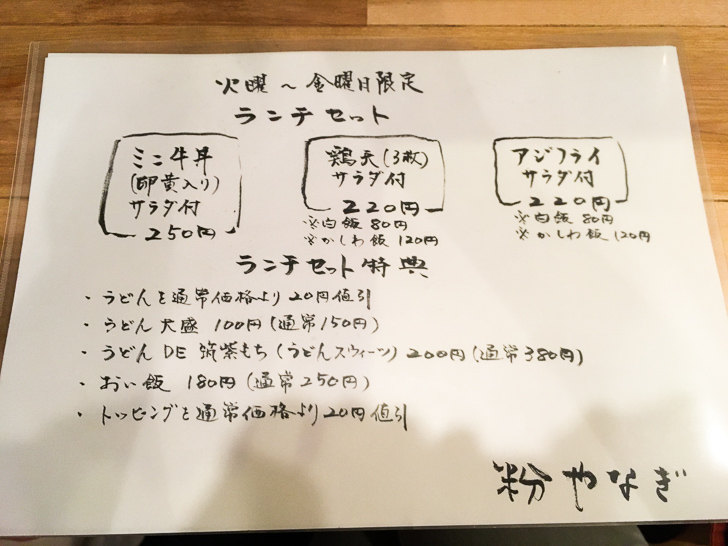 火曜〜金曜日限定
ランチセット
ミニ牛丼
(卵黄入り)
サラダ付
250円
鶏天(3枚)
サラダ付
220円
※白飯 80円
※かしわ飯 120円
アジフライ
サラダ付
220円
※白飯 80円
※かしわ飯 120円
ランチセット特典
・うどんを通常価格より20円値引
・うどん大盛 100円(通常150円)
・うどんDE 筑紫もち(うどんスウィーツ) 200円(通常380円)
・おい飯 180円(通常250円)
・トッピングを通常価格より20円値引
粉やなぎ